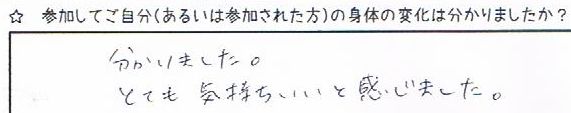 ☆ 参加してご自分(あるいは参加された方)の身体の変化は分かりましたか？
分かりました。
とても気持ちいいと感じました。